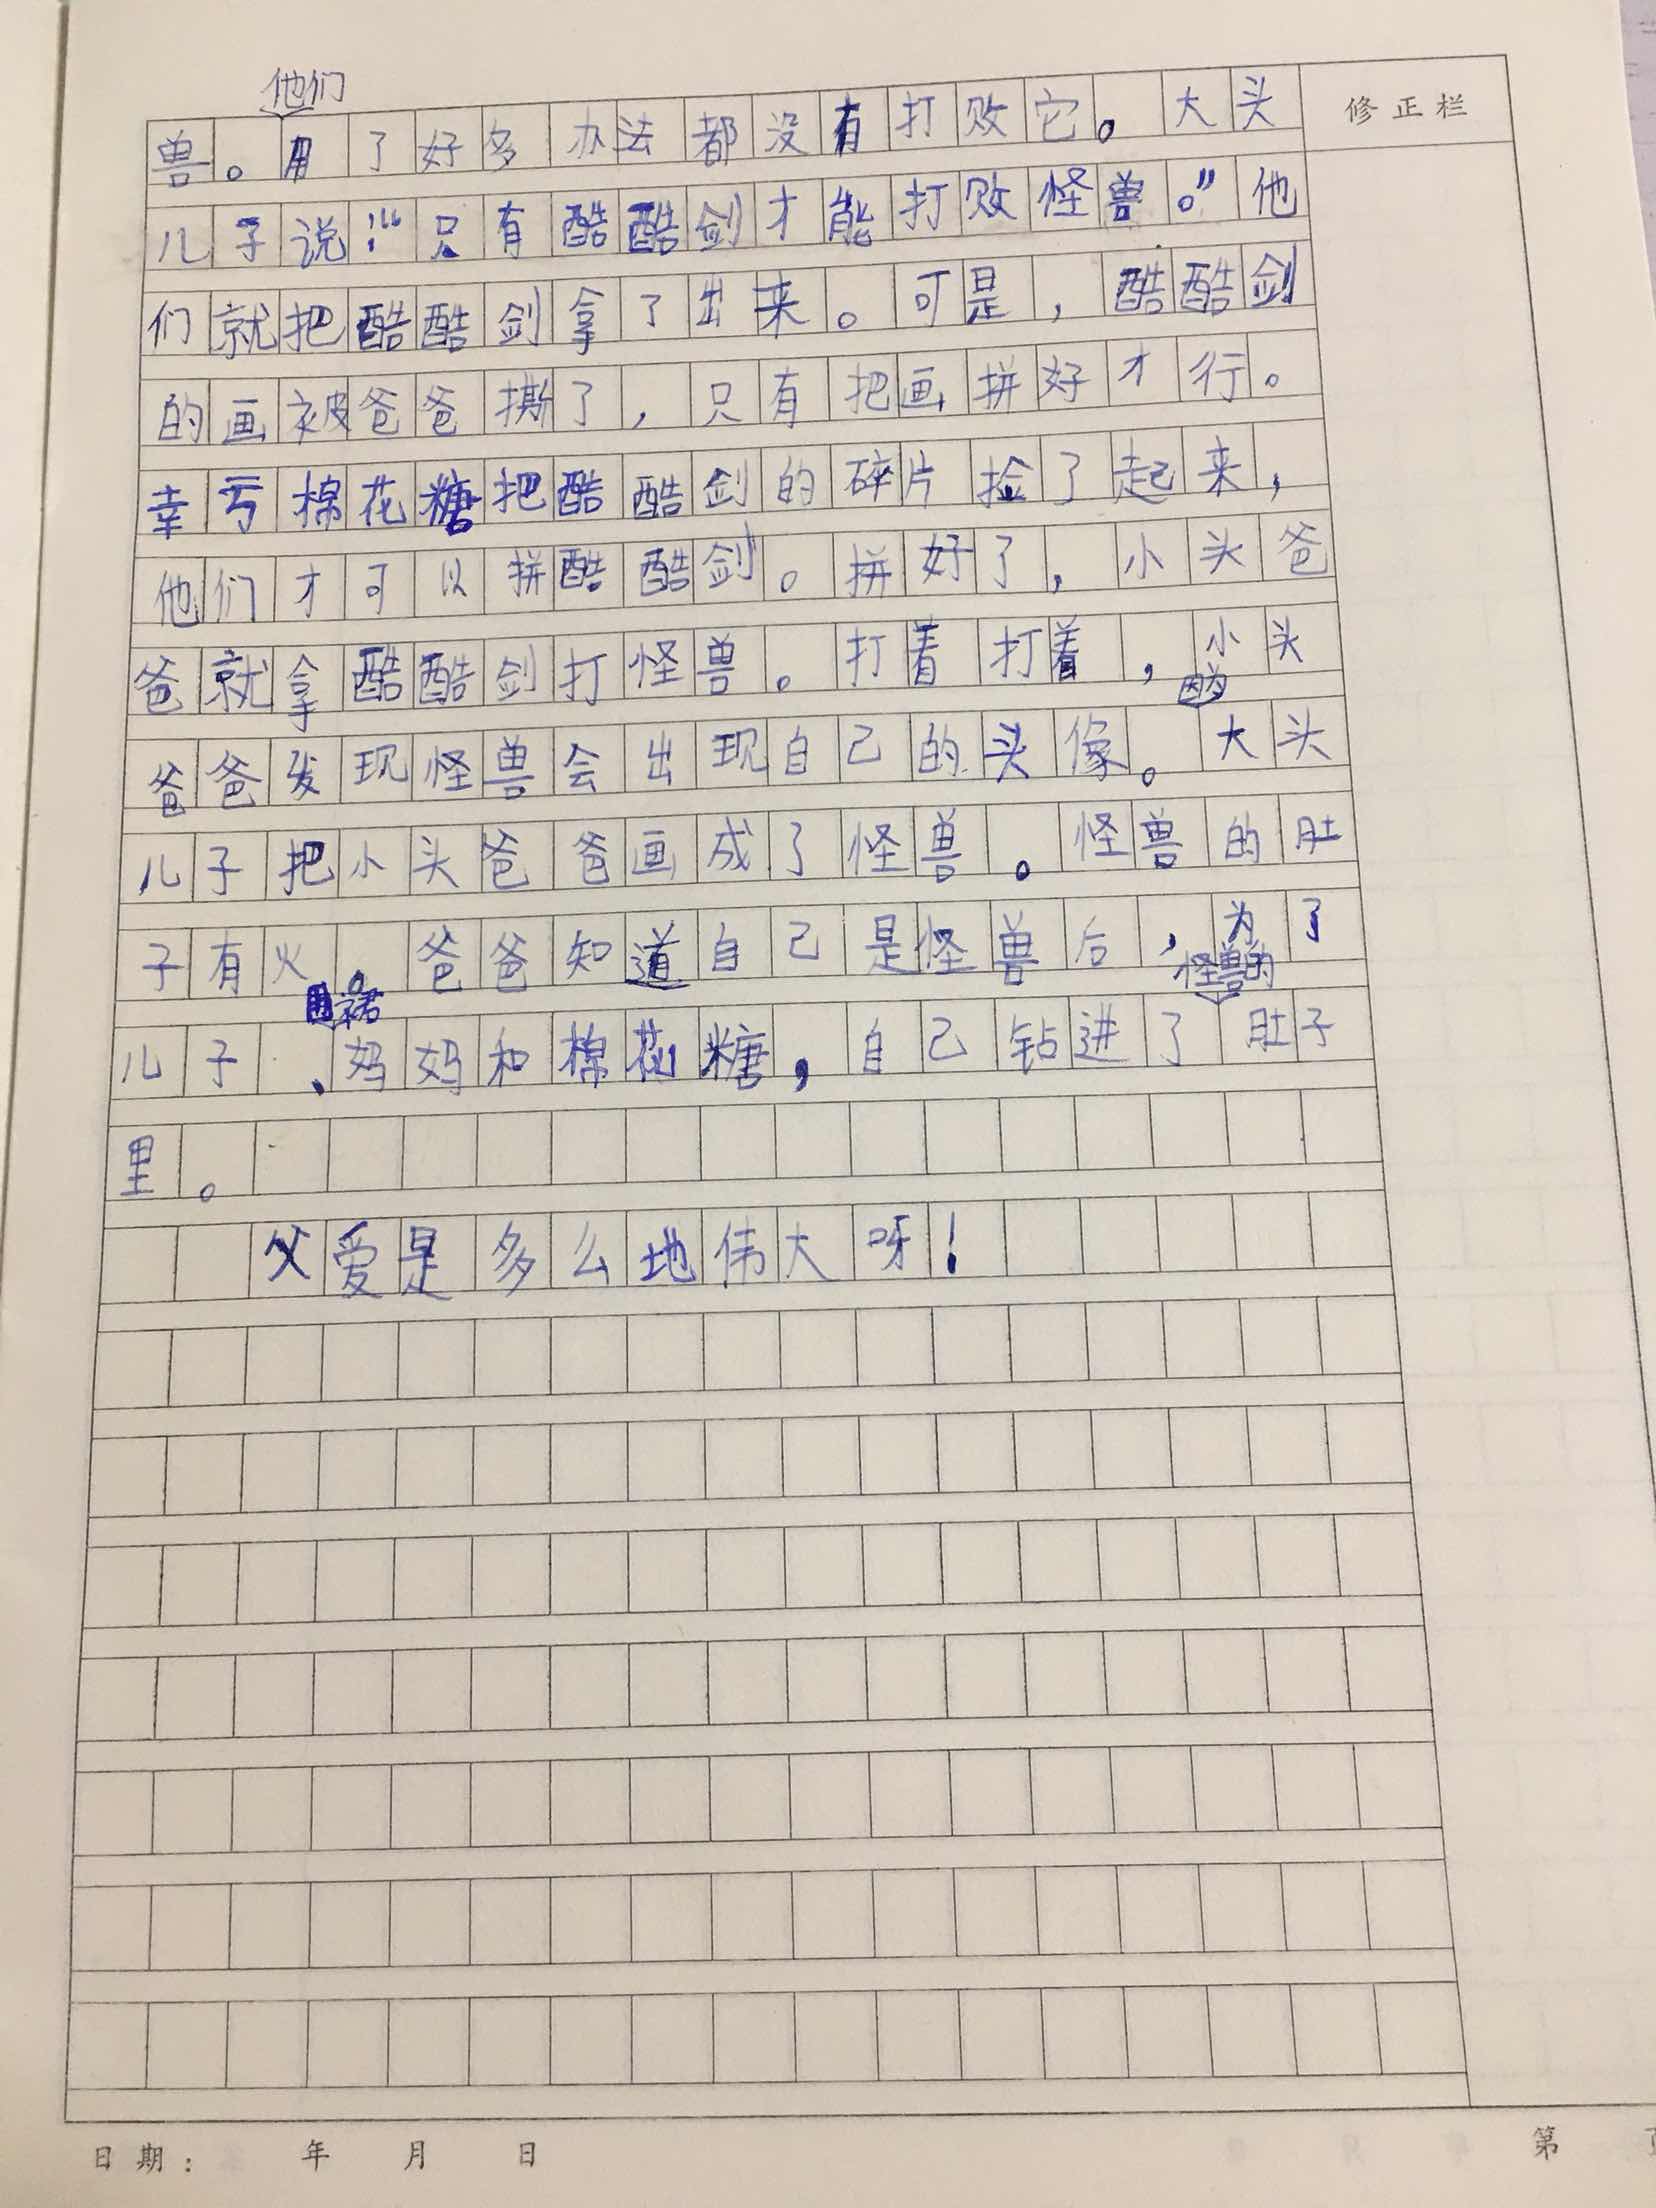 他们
兽。用了好多办法都没有打败它。大头 修正栏
儿子说:“只有酷酷剑才能打败怪兽。”他
们就把酷酷剑拿了出来。可是，酷酷剑
的画被爸爸撕了，只有把画拼好才行。
幸亏棉花糖把酷酷剑的碎片捡了起来，
他们才可以拼酷酷剑。拼好了，小头爸
爸就拿酷酷剑打怪兽。打着打着，小头
因为
爸爸发现怪兽会出现自己的头像。大头
儿子把小头爸爸画成了怪兽。怪兽的肚
子有火。爸爸知道自己是怪兽后，为了
裙 怪兽的
儿子、妈妈和棉花糖，自己钻进了肚子
里。
父爱是多么地伟大呀！
日期: 年 月 日 第